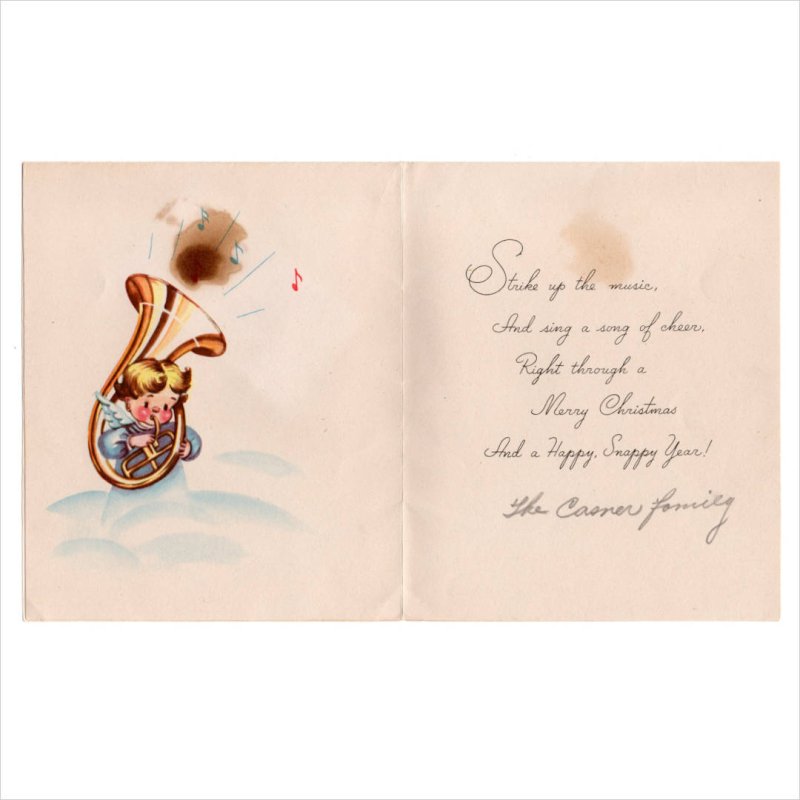 Strike up the music,
And sing a song of cheer,
Right through a
Merry Christmas
And a Happy, Snappy Year!
The Casner Family